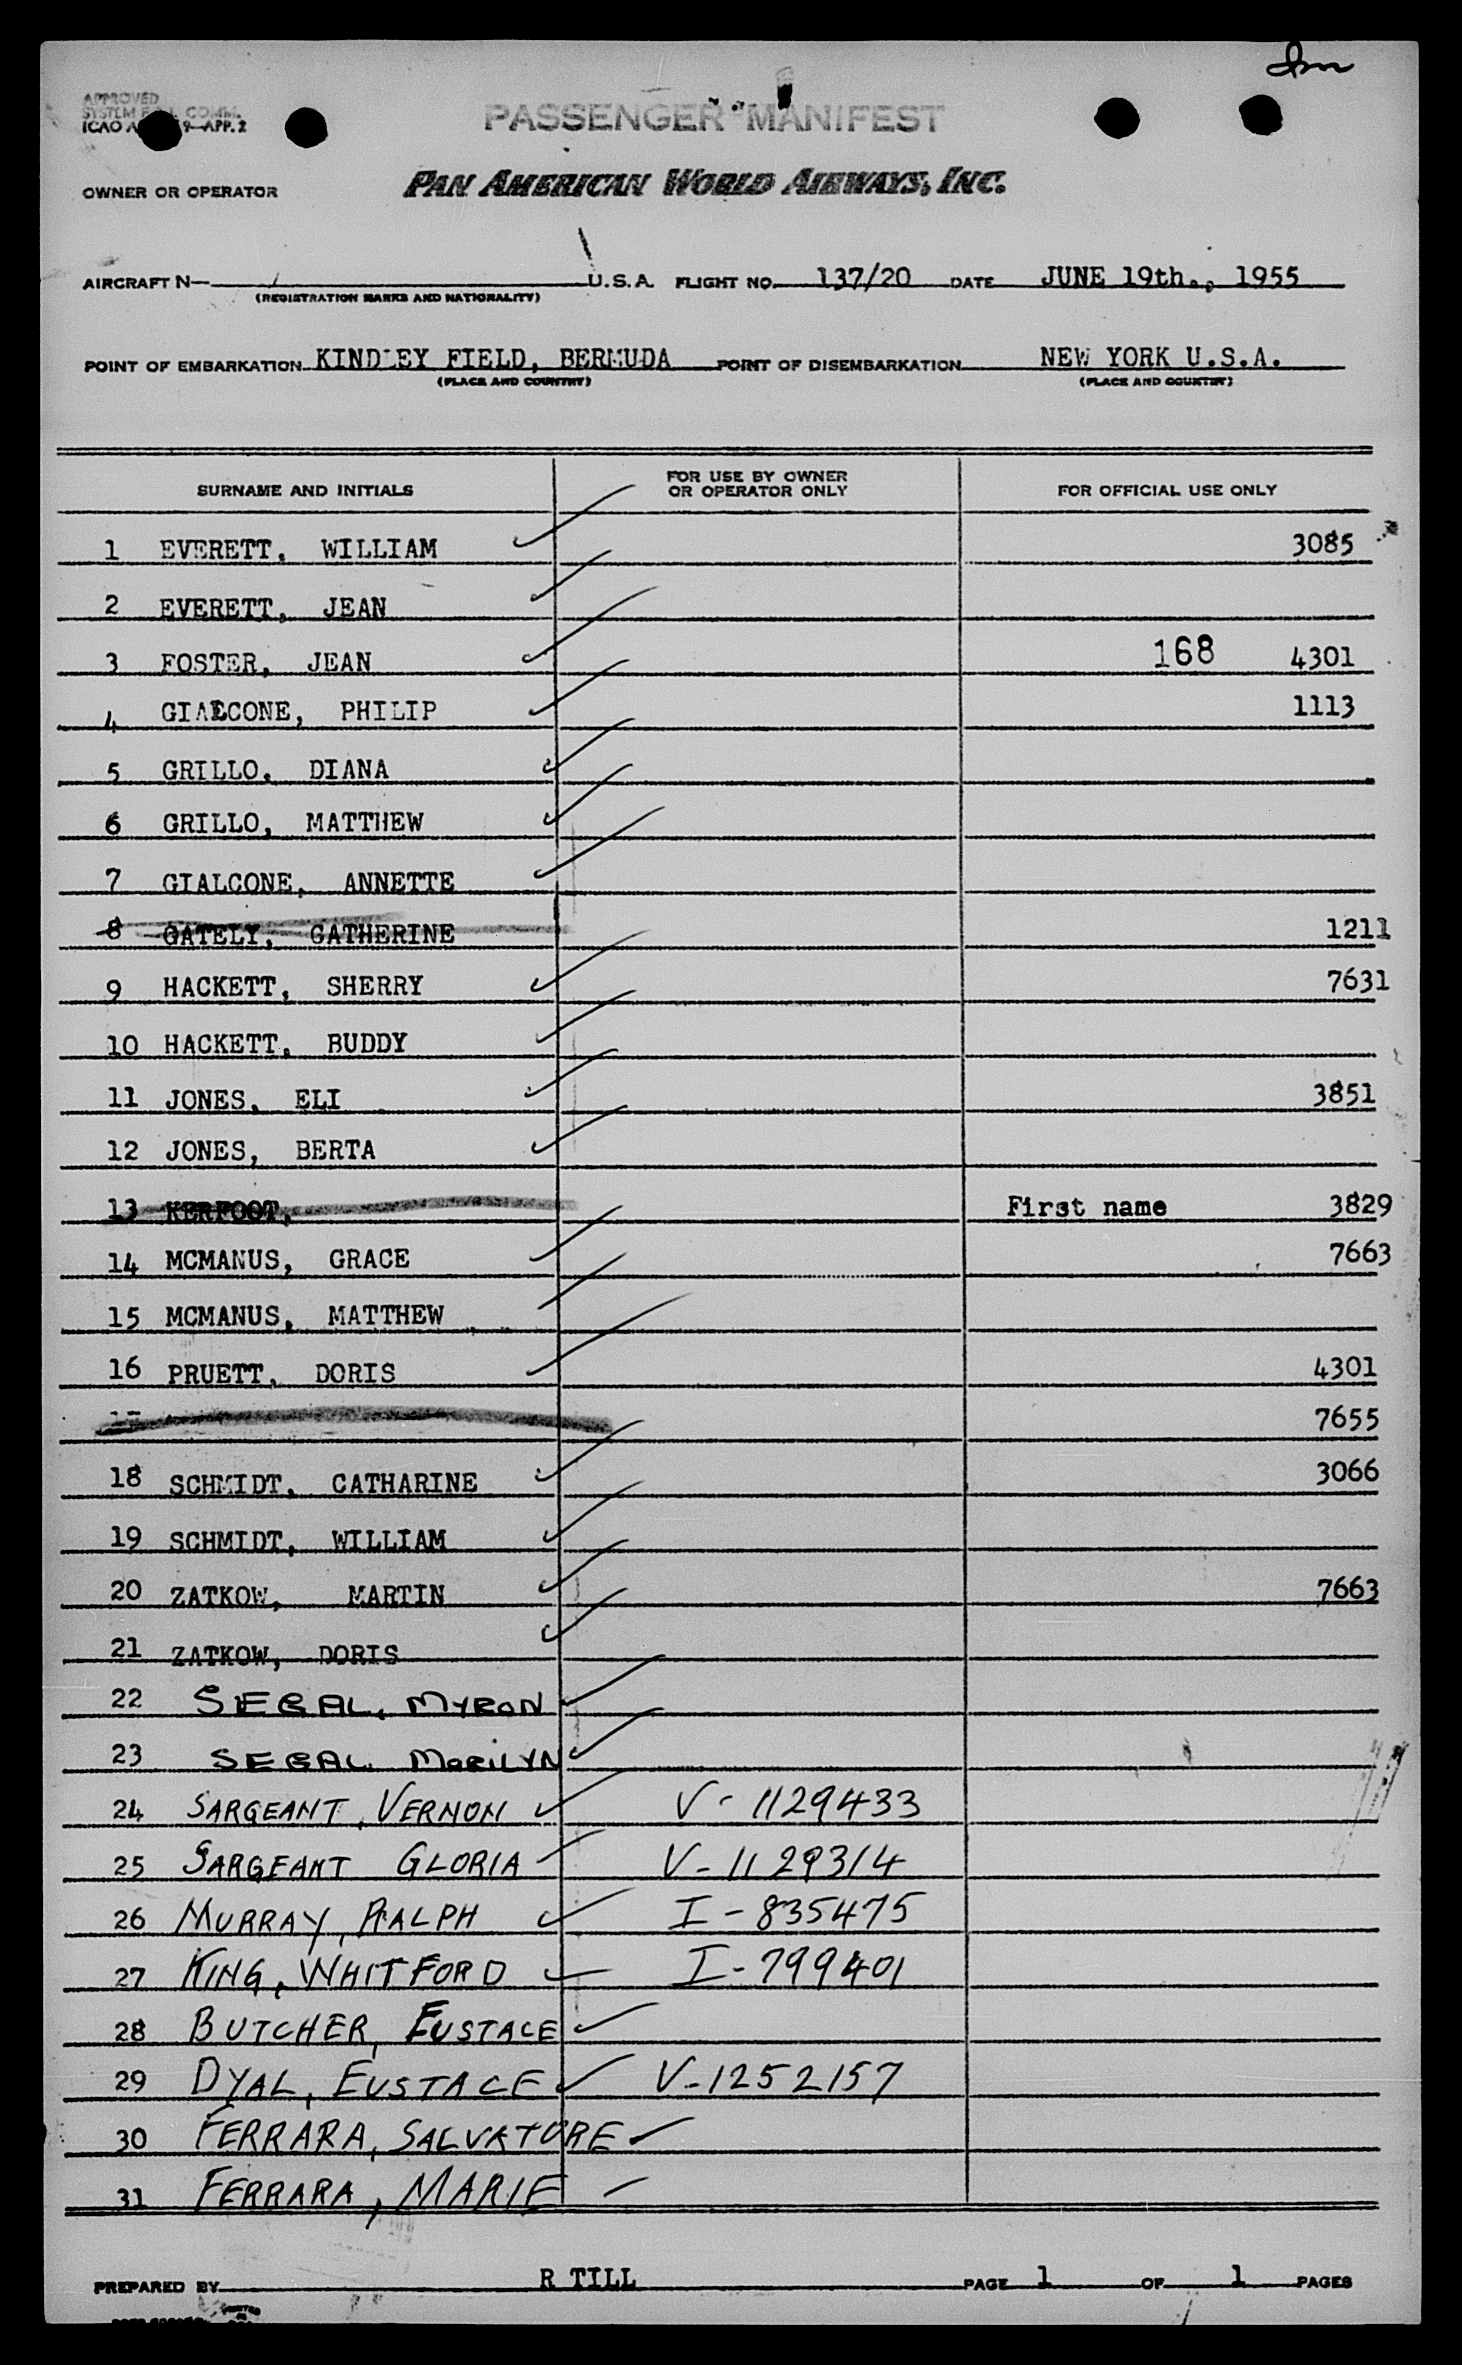 APPROVED
SYSTEM COMM.
ICAO 9—APP. 2
PASSENGER MANIFEST
OWNER OR OPERATOR PAN AMERICAN WORLD AIRWAYS, INC.
AIRCRAFT N— U.S.A. FLIGHT NO. 137/20 DATE JUNE 19th., 1955
(REGISTRATION MARKS AND NATIONALITY)
POINT OF EMBARKATION KINDLEY FIELD, BERMUDA POINT OF DISEMBARKATION NEW YORK U.S.A.
(PLACE AND COUNTRY) (PLACE AND COUNTRY)
SURNAME AND INITIALS FOR USE BY OWNER OR OPERATOR ONLY FOR OFFICIAL USE ONLY
1 EVERETT, WILLIAM 3085
2 EVERETT, JEAN
3 FOSTER, JEAN 168 4301
4 GIALCONE, PHILIP 1113
5 GRILLO, DIANA
6 GRILLO, MATTHEW
7 GIALCONE, ANNETTE
8 GATELY, CATHERINE 1211
9 HACKETT, SHERRY 7631
10 HACKETT, BUDDY
11 JONES, ELI 3851
12 JONES, BERTA
13 KERFOOT, First name 3829
14 MCMANUS, GRACE 7663
15 MCMANUS, MATTHEW
16 PRUETT, DORIS 4301
7655
18 SCHMIDT, CATHARINE 3066
19 SCHMIDT, WILLIAM
20 ZATKOW, MARTIN 7663
21 ZATKOW, DORIS
22 SEGAL, MYRON
23 SEGAL MARILYN
24 SARGEANT, VERNON V- 1129433
25 SARGEANT GLORIA V- 1129314
26 MURRAY, RALPH I - 835475
27 KING, WHITFORD I - 799401
28 BUTCHER, EUSTACE
29 DYAL, EUSTACE V-1252157
30 FERRARA, SALVATORE
31 FERRARA, MARIE
PREPARED BY R TILL PAGE 1 OF 1 PAGES